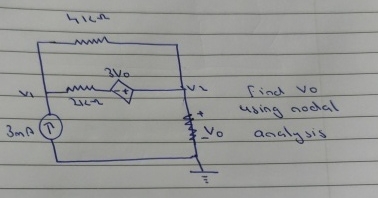 4kΩ
3V0
V1
2kΩ
V2
3mA
+
V0
-
Find V0
using nodal
analysis